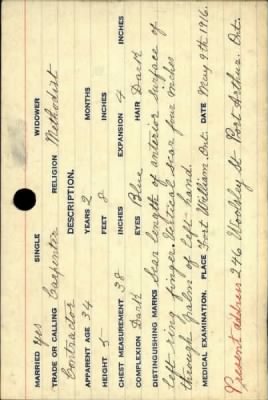 MARRIED Yes SINGLE WIDOWER
TRADE OR CALLING Carpenter RELIGION Methodist
Contractor DESCRIPTION.
APPARENT AGE 34 YEARS 2 MONTHS
HEIGHT 5 FEET 8 INCHES
CHEST MEASUREMENT 38 INCHES EXPANSION 4 INCHES
COMPLEXION Dark EYES Blue HAIR Dark
DISTINGUISHING MARKS Scar length of anterior surface of
left ring finger. Vertical scar four inches
through palm of left hand.
MEDICAL EXAMINATION. PLACE Fort William. Ont. DATE May 9th 1916.
Present address 246 Woolsley St Port Arthur. Ont.